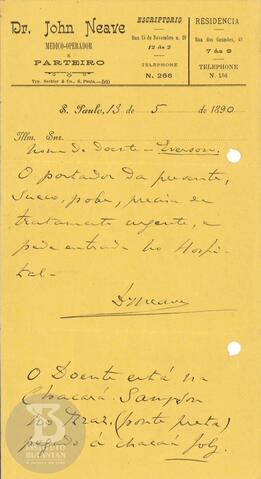 Dr. John Neave
MEDICO-OPERADOR
E
PARTEIRO
Typ. Seckler & C., S. Paulo.—560
ESCRIPTORIO
Rua 15 de Novembro n. 20
12 ás 2
TELEPHONE
N. 266
RESIDENCIA
Rua dos Guaonões, 41
7 ás 9
TELEPHONE
N. 156
S. Paulo, 13 de 5 de 1890
Illm. Snr.
Nome do doente - Everson.
O portador da presente,
Sueco, pobre, precisa de
tratamento urgente, e
pede entrada no Hospi-
tal.
Dr Neave
O Doente está na
Chacara Sampson
no Braz. (ponte preta)
pegado á chacara Joly.
INSTITUTO
BUTANTAN